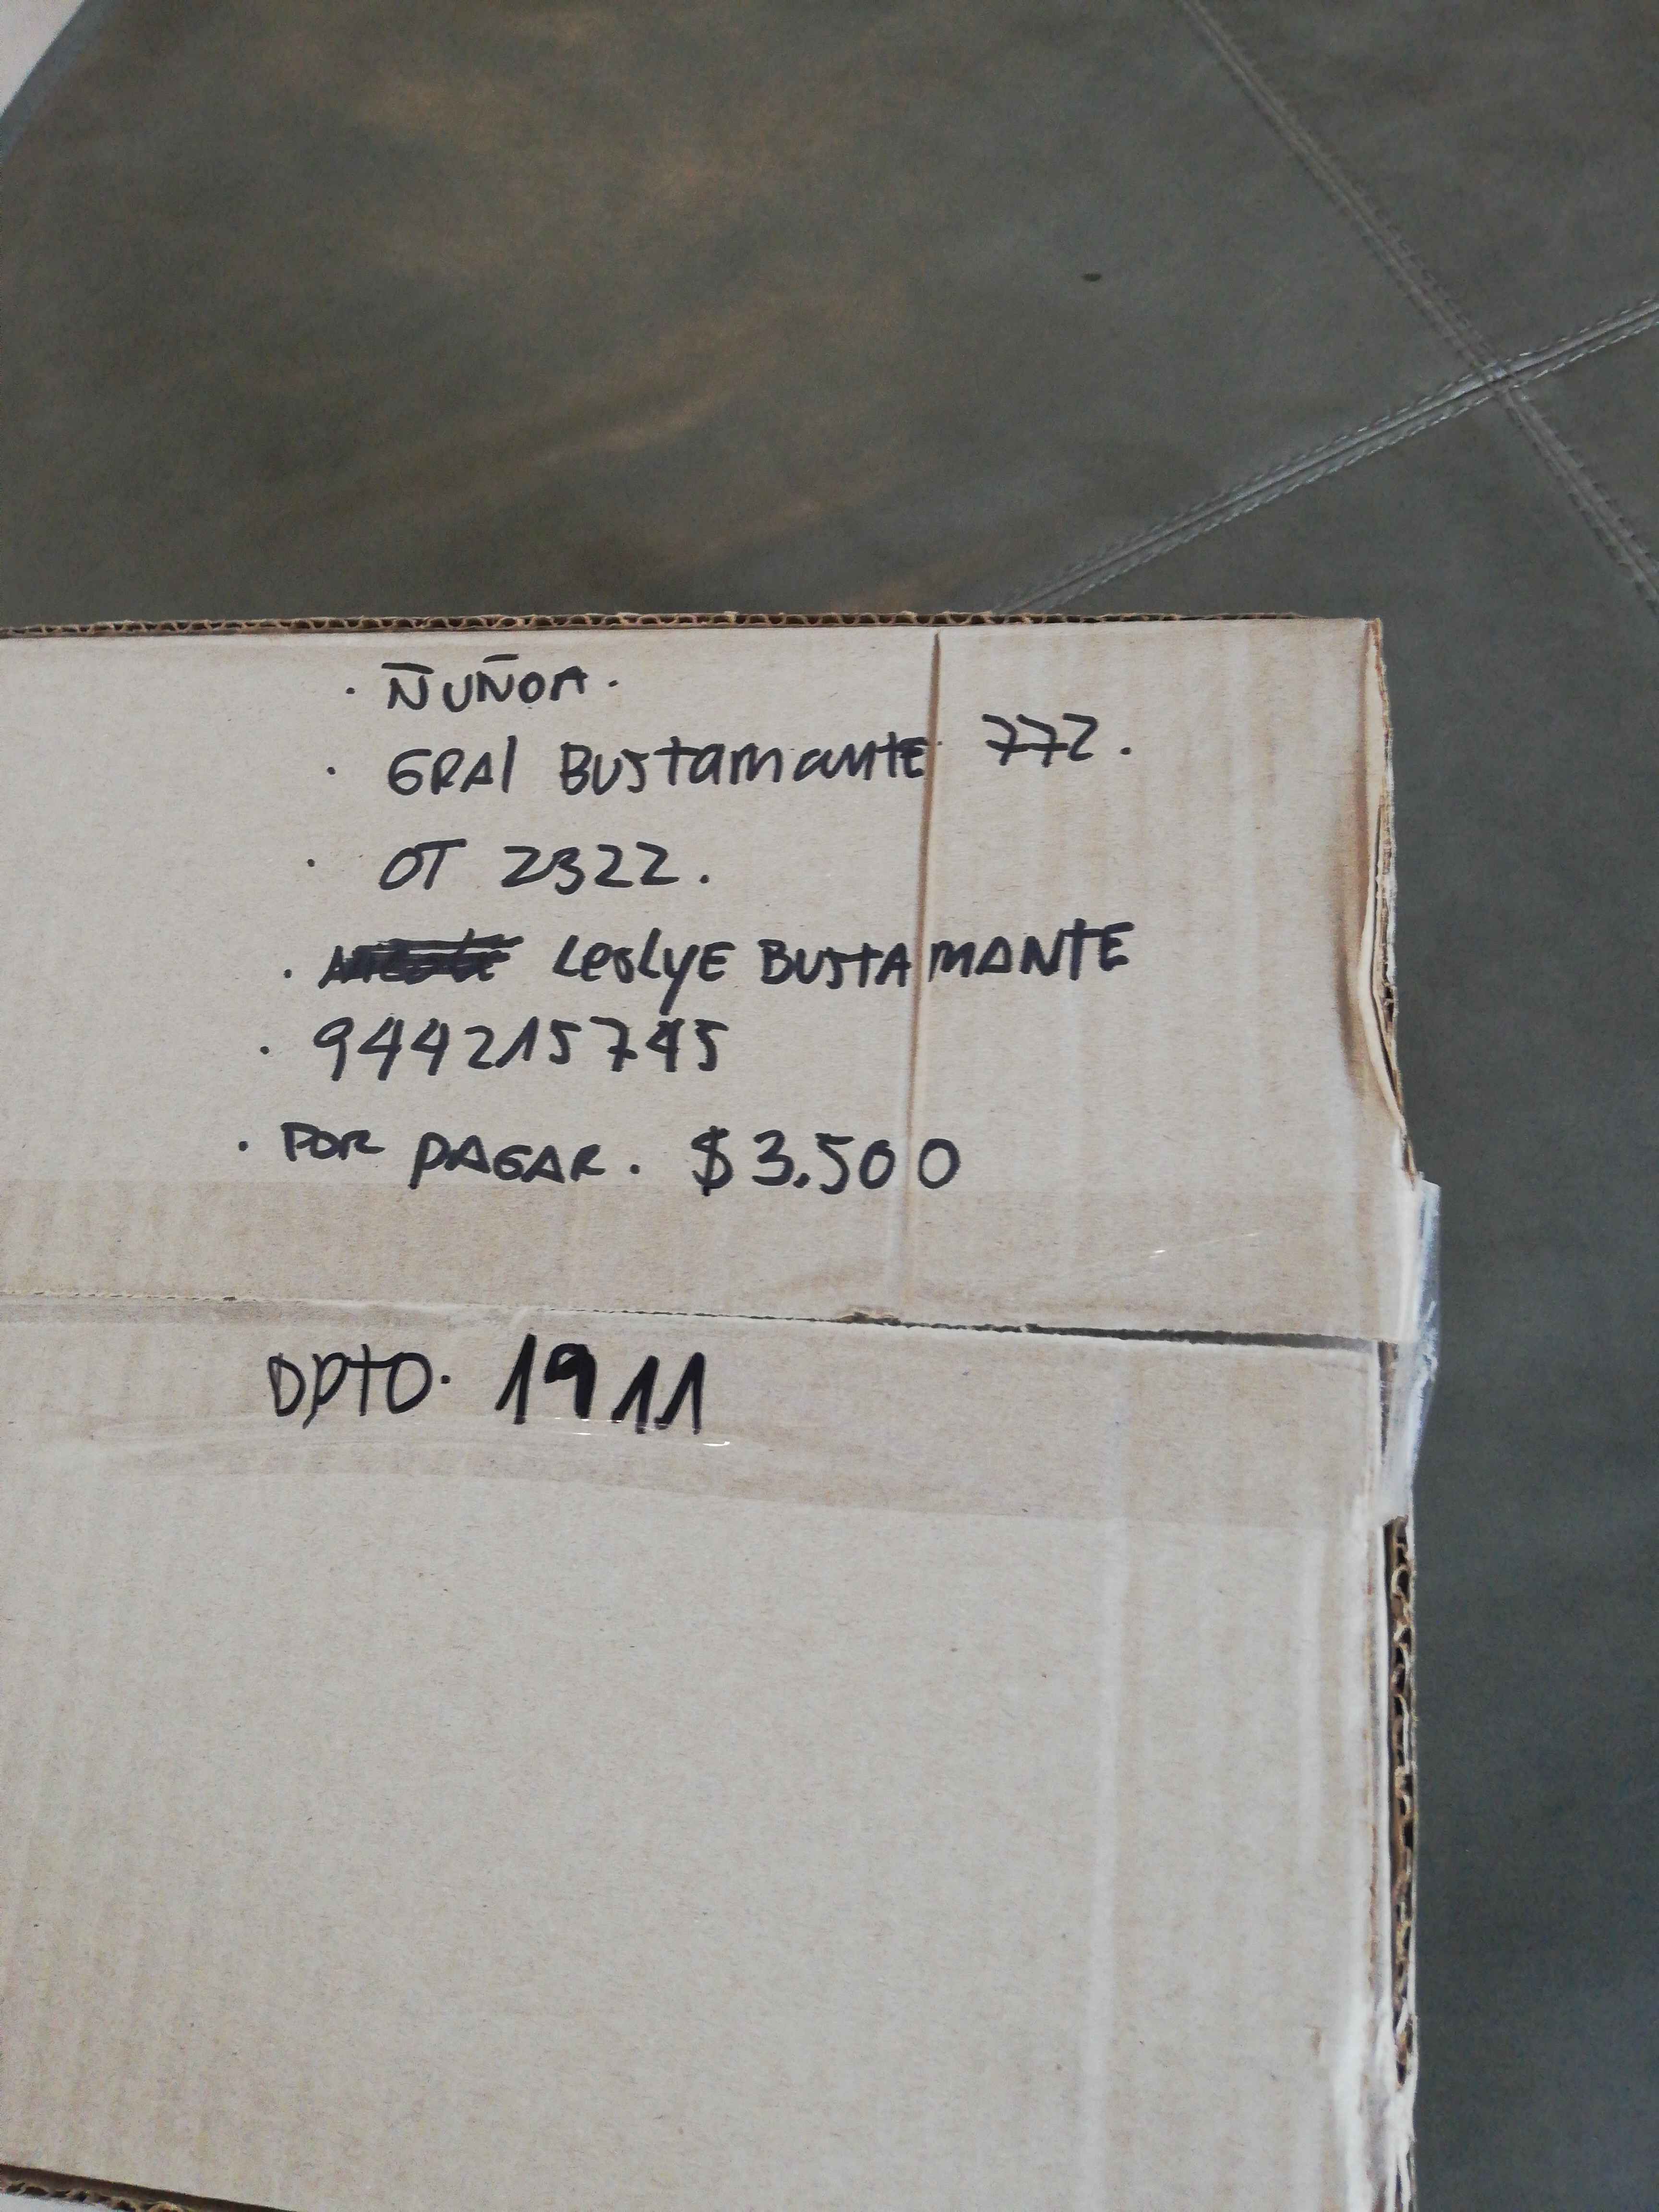 · ÑUÑOA.
· GRAl BUStamantE 772.
· OT 2322.
· LeslyE BUSTAMANTE
· 944215745
· POR PAGAR. $3.500
DPTO. 1911